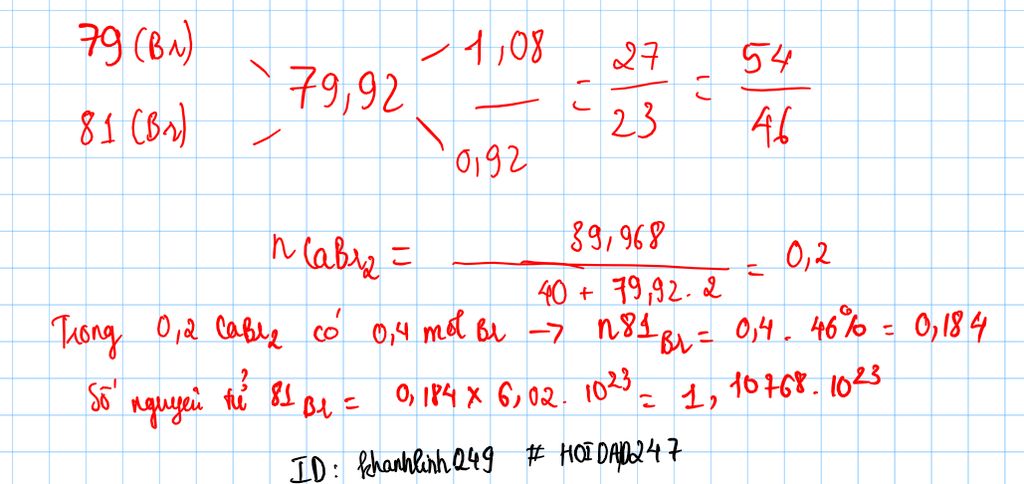 79 (Br)
81 (Br)
79,92
1,08
0,92
= 27/23 = 54/46
n CaBr₂ = 39,968 / (40 + 79,92 . 2) = 0,2
Trong 0,2 CaBr₂ có 0,4 mol Br → n81 Br = 0,4 . 46% = 0,184
Số nguyên tử 81 Br = 0,184 × 6,02 . 10²³ = 1,10768 . 10²³
ID: khanhlinh0249 # HOIDAP247